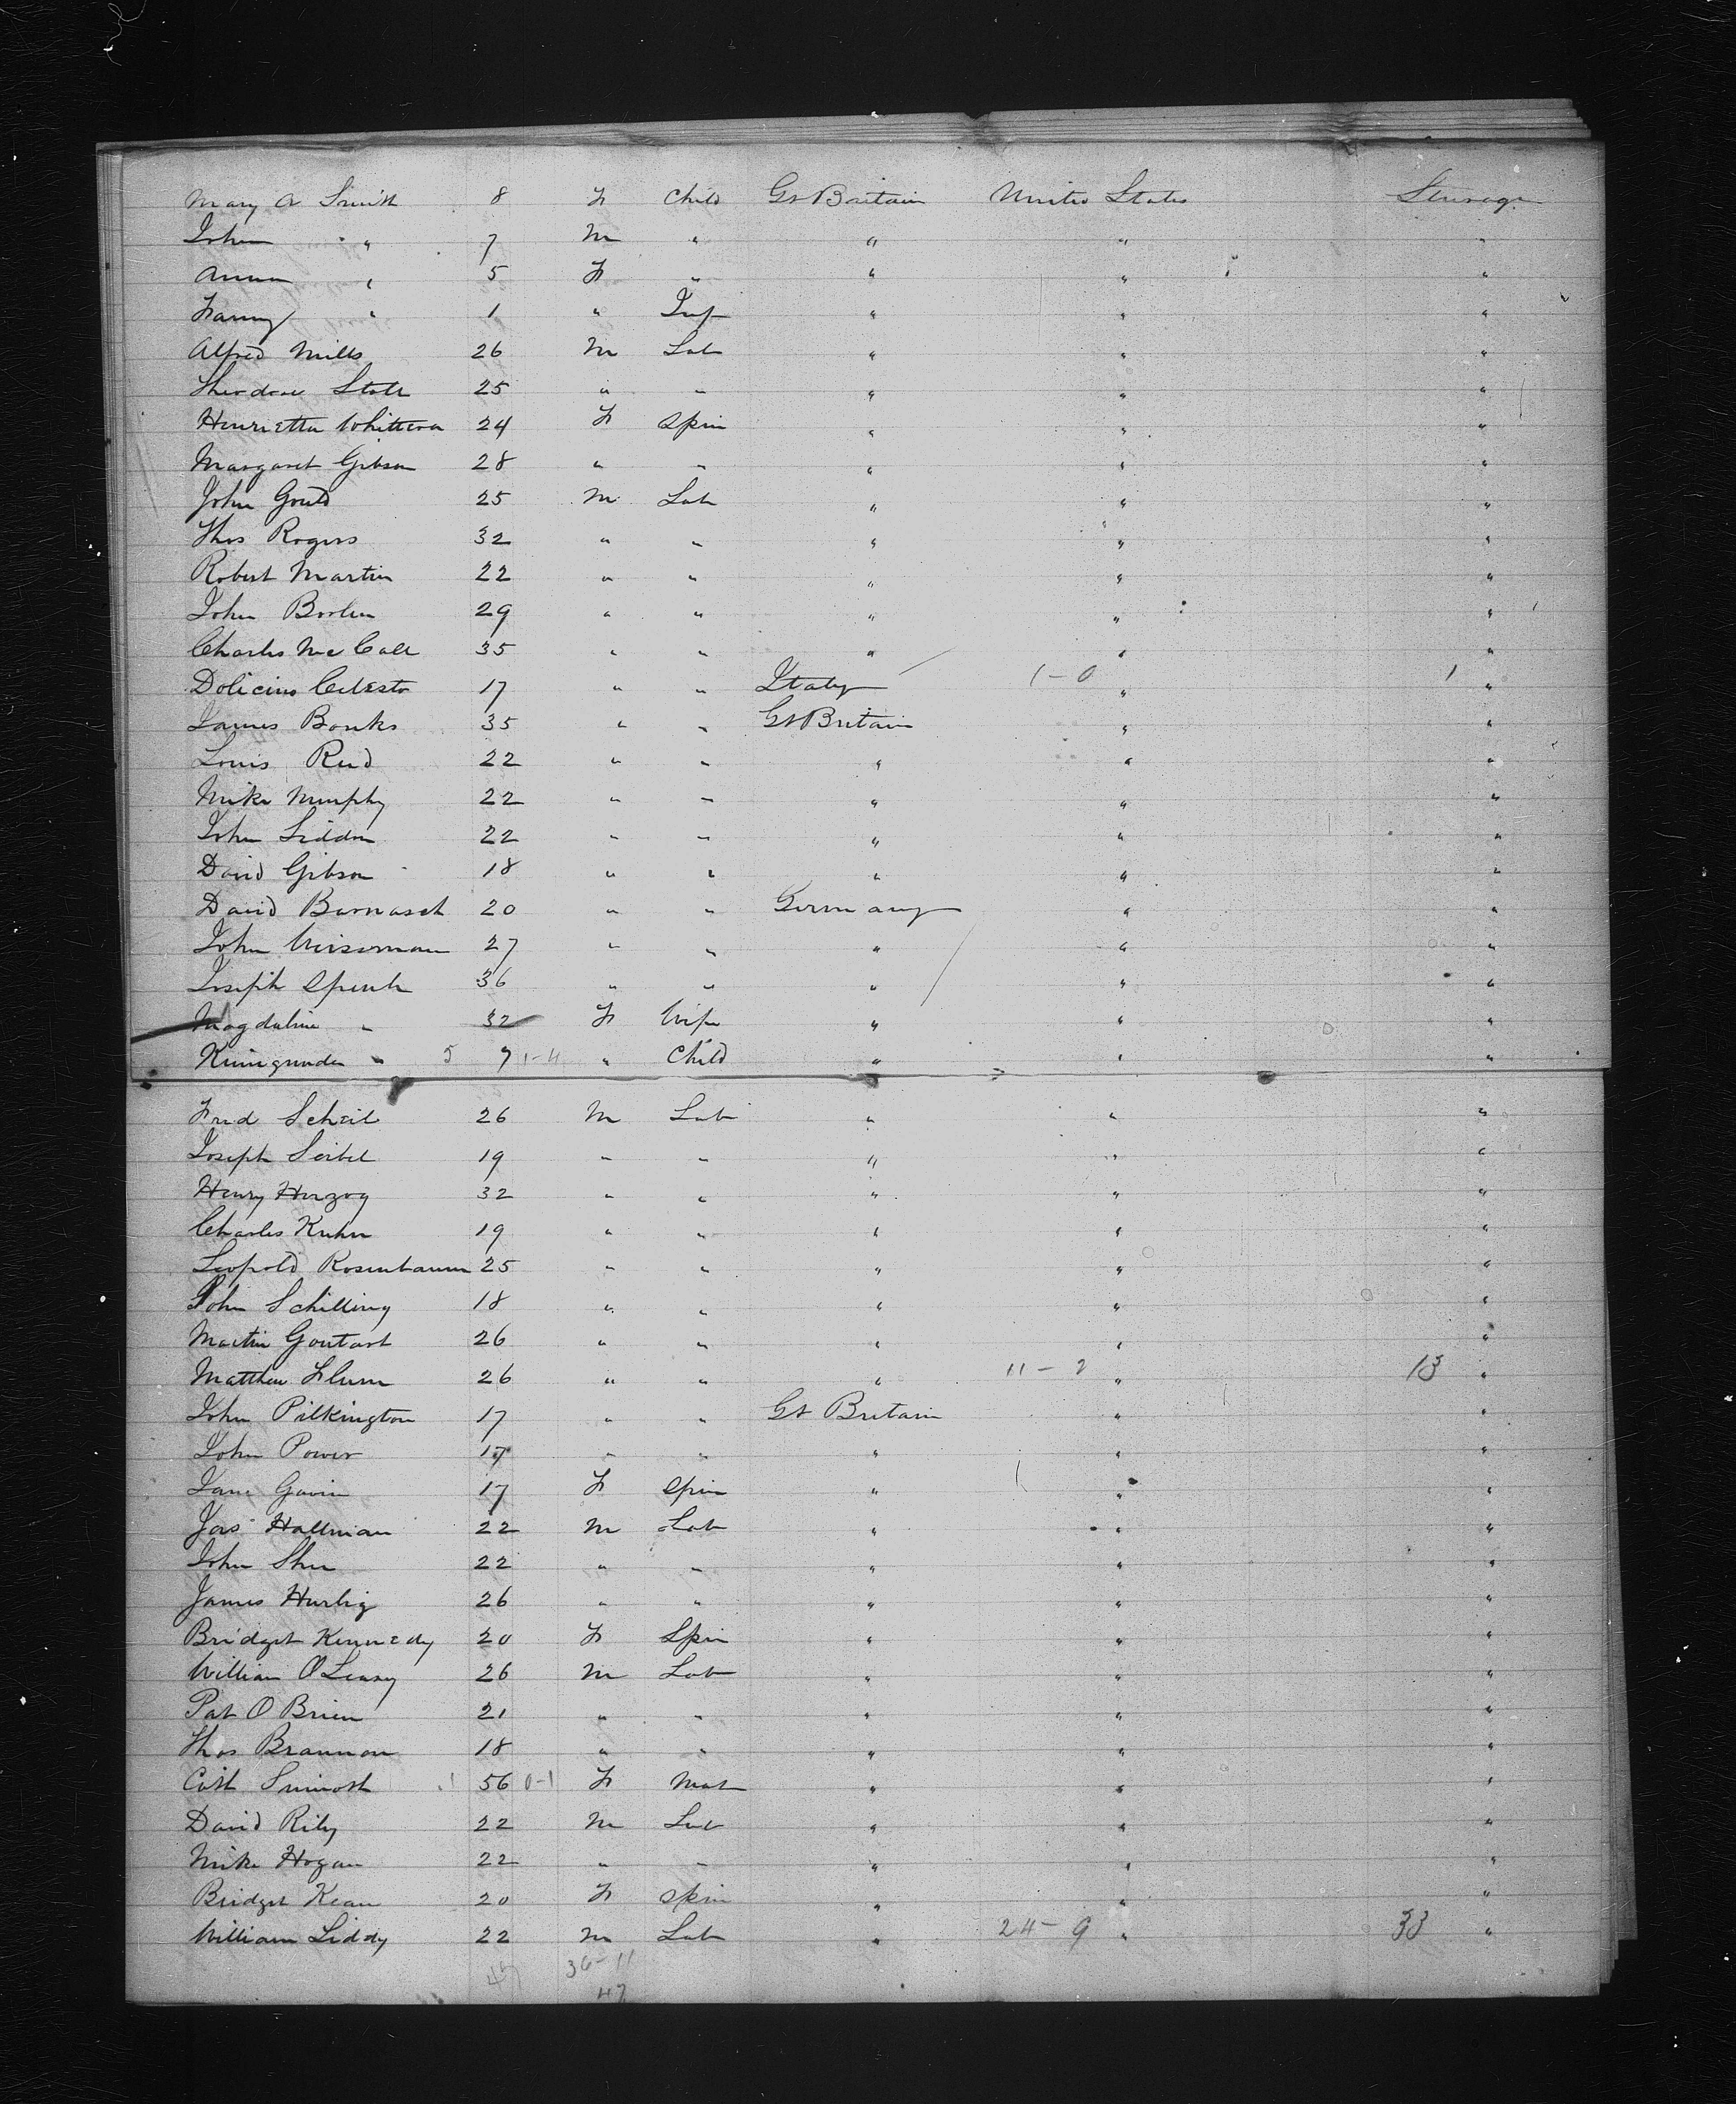 Mary A Smith 8 F Child Gt Britain United States Steerage
John " 7 M " " " "
Anna " 5 F " " " "
Fanny " 1 " Inf " " "
Alfred Mills 26 M Lab " " "
Theodore 25 " " " " "
Henrietta 24 F Spin " " "
Margaret Gibson 28 " " " " "
John Gould 25 M Lab " " "
Thos Rogers 32 " " " " "
Robert Martin 22 " " " " "
John 29 " " " " "
Charles McCall 35 " " " " "
17 " " Italy 1-0 " 1 "
James Banks 35 " " Gt Britain " "
Louis Reid 22 " " " " "
Mike Murphy 22 " " " " "
John 22 " " " " "
David Gibson 18 " " " " "
David 20 " " Germany " "
John Wiseman 27 " " " " "
Joseph 36 " " " " "
Magdaline " 32 F Wife " " "
" 5 7 1-4 " Child " " "
Fred Scheib 26 M Lab " " "
Joseph Seibel 19 " " " " "
Henry Herzog 32 " " " " "
Charles Kuhn 19 " " " " "
Leopold Rosenbaum 25 " " " " "
John Schilling 18 " " " " "
Martin 26 " " " " "
Matthew 26 " " " 11-2 " 13 "
John Pilkington 17 " " Gt Britain " "
John Power 17 " " " " "
Jane Gavin 17 F Spin " " "
Jas Hallman 22 M Lab " " "
John Shea 22 " " " " "
James 26 " " " " "
Bridget Kennedy 20 F Spin " " "
William O Leary 26 M Lab " " "
Pat O Brien 21 " " " " "
Thos Brannon 18 " " " " "
1 56 0-1 F Mat " " "
David Rily 22 M Lab " " "
Mike Hogan 22 " " " " "
Bridget Kean 20 F Spin " " "
William Liddy 22 M Lab " 24-9 " 33 "
47 36-11
47